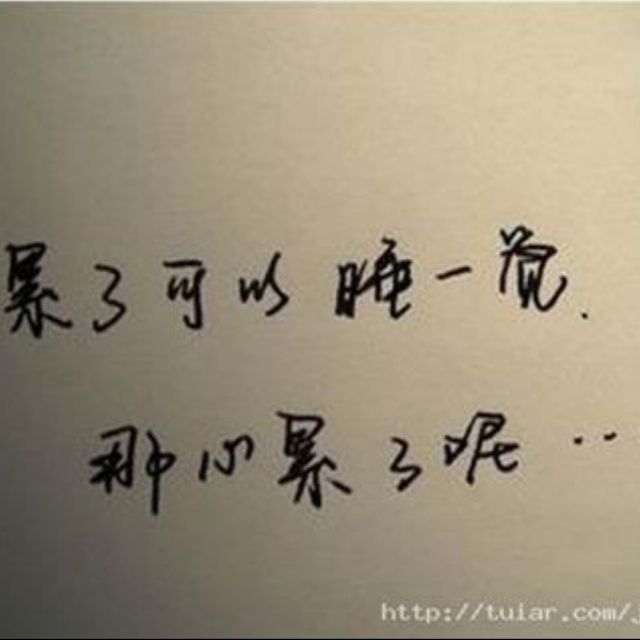 累了可以睡一觉.
那心累了呢··
http://tuiar.com/j